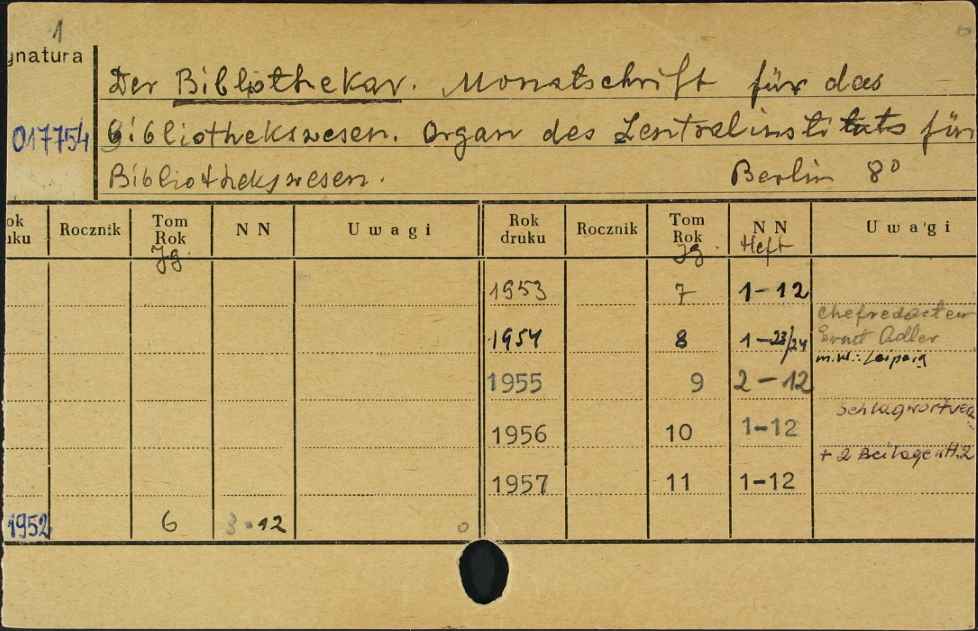 1
ynatura
Der Bibliothekar. Monatschrift für das
017754
Bibliothekswesen. Organ des Zentralinstituts für
Bibliothekswesen. Berlin 8°
ok uku Rocznik Tom Rok NN Uwagi Rok druku Rocznik Tom Rok NN Uwagi
Jg. Jg. Heft
1953 7 1-12
Chefredacteur
1954 8 1-23/24 Ernst Adler
m.W.: Leipzig
1955 9 2-12
Schlagwortver
1956 10 1-12
+ 2 Beilagen H.2
1957 11 1-12
1952 6 3-12